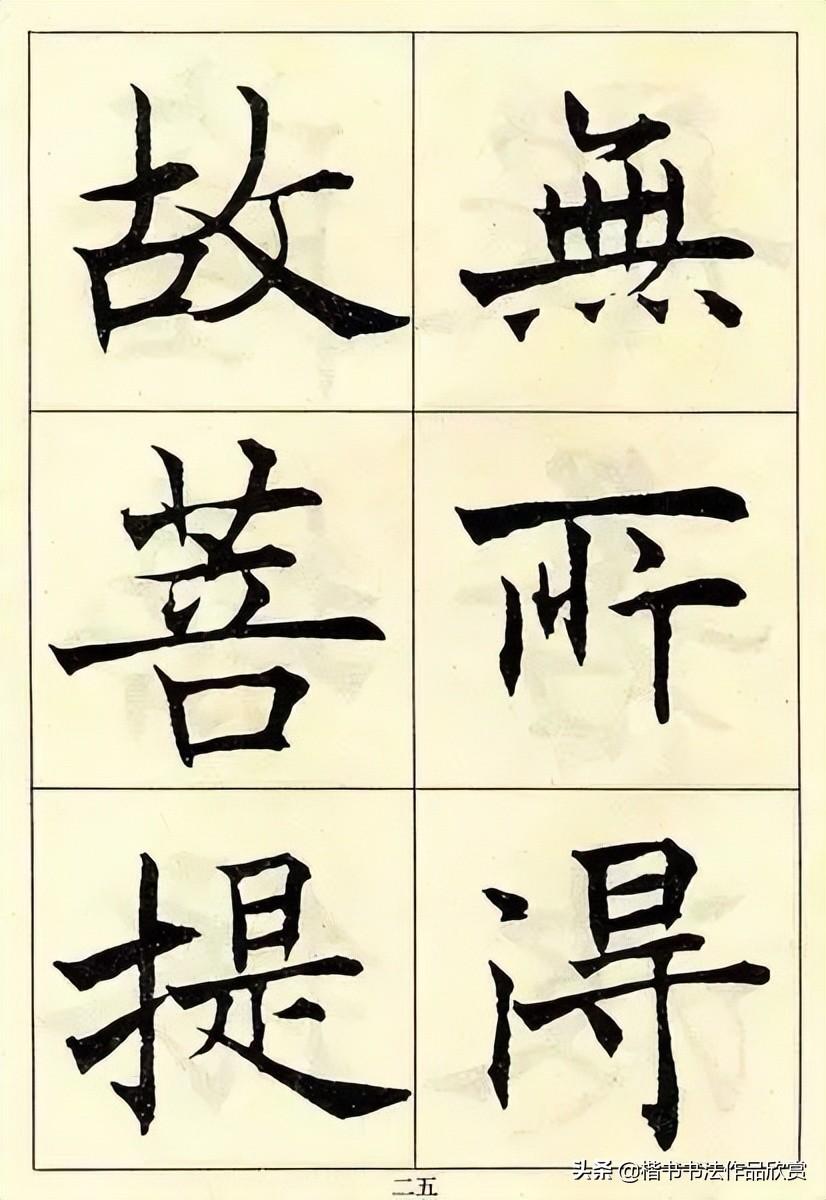 無所得
故菩提
二五
头条 @楷书书法作品欣赏